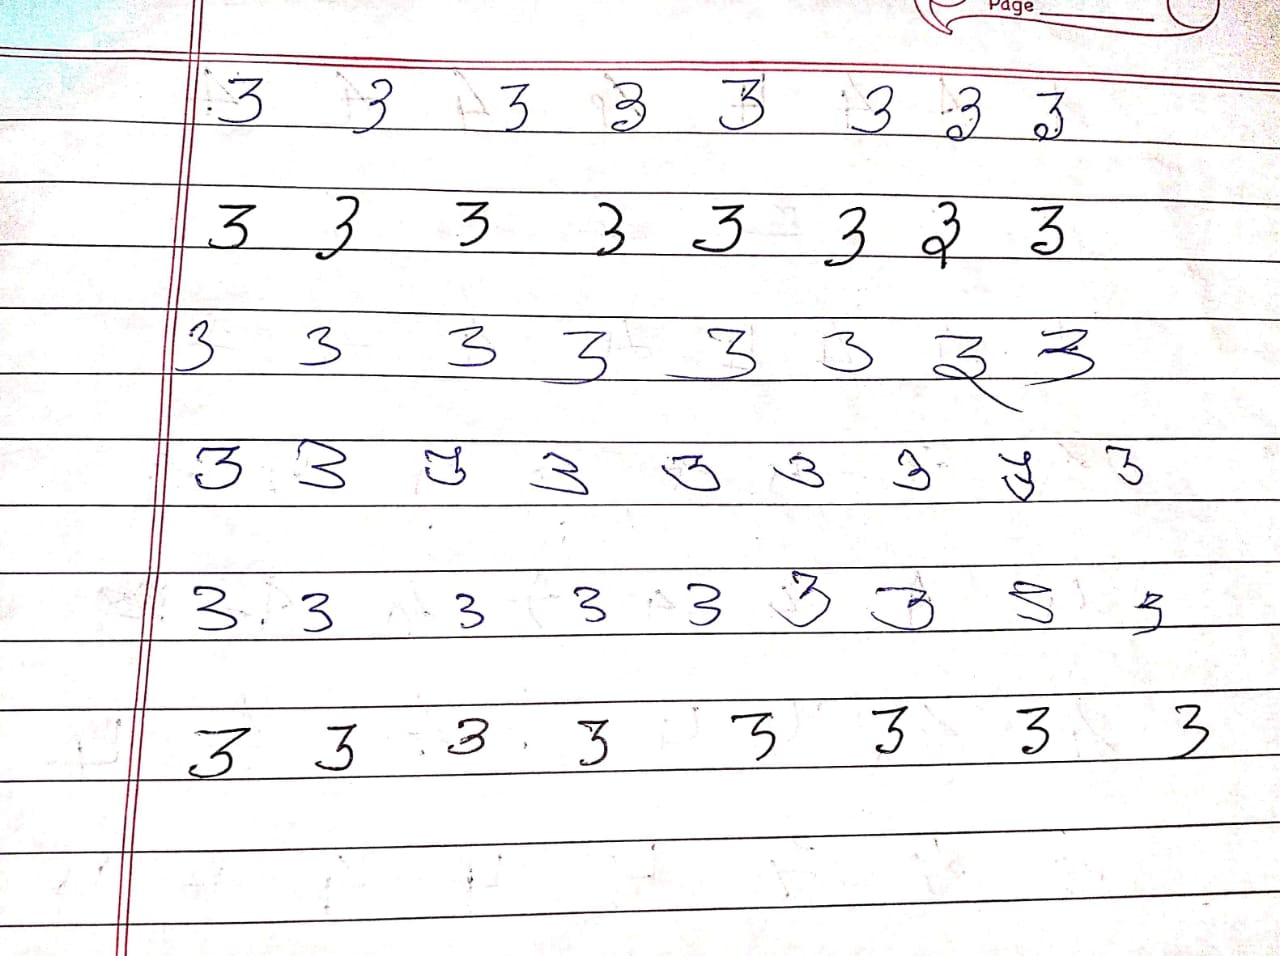 Page
3 3 3 3 3 3 3 3
3 3 3 3 3 3 3 3
3 3 3 3 3 3 3 3
3 3 3 3 3 3 3 3 3
3 3 3 3 3 3 3 3 3
3 3 3 3 3 3 3 3